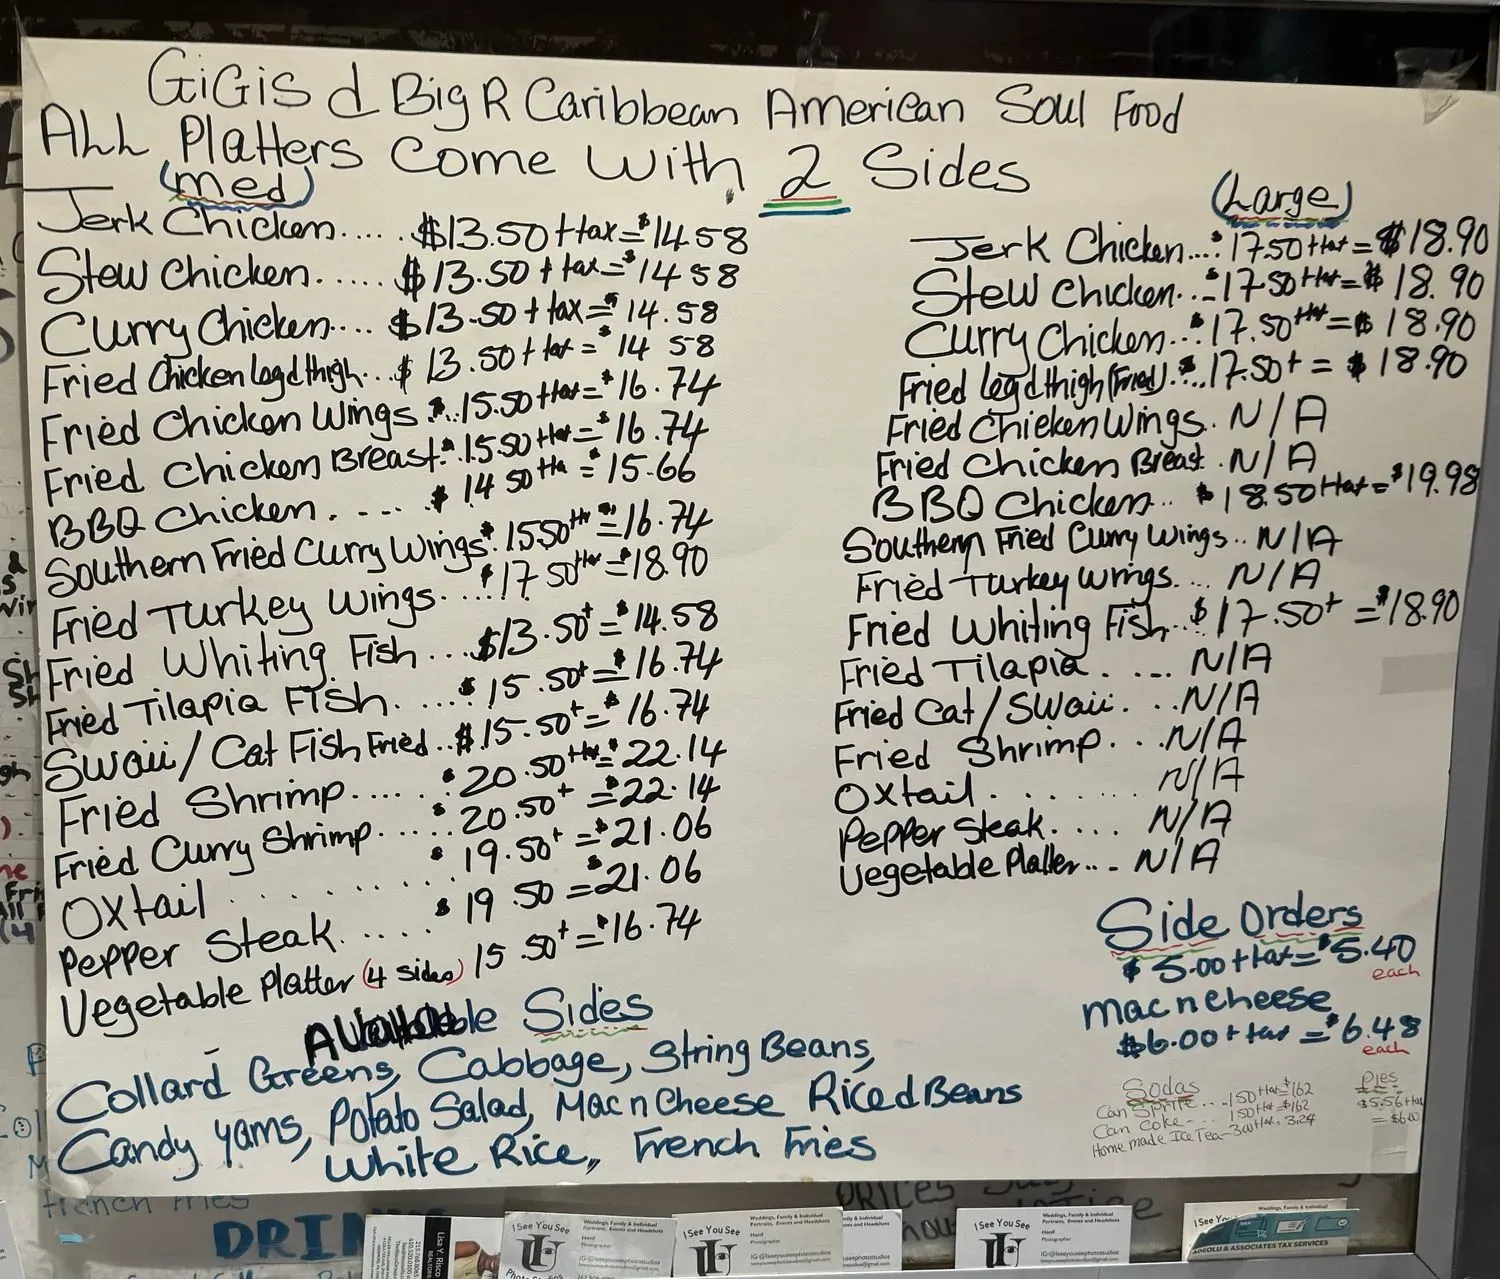 GiGis d Big R Caribbean American Soul Food
ALL Platters Come With 2 Sides
(med)
Jerk Chicken.... $13.50 + tax = $14.58
Stew Chicken..... $13.50 + tax = $14 58
Curry Chicken.... $13.50 + tax = $14.58
Fried Chicken leg d thigh... $13.50 + tax = $14 58
Fried Chicken Wings $..15.50 + tax = $16.74
Fried Chicken Breast.. $15.50 + tax = $16.74
BBQ Chicken..... $14 50 + tax = $15.66
Southern Fried Curry Wings $15.50 + tax = $16.74
Fried Turkey Wings..... $17 50 + tax = $18.90
Fried Whiting Fish... $13.50+ = $14.58
Fried Tilapia Fish..... $15.50+ = $16.74
Swaii / Cat Fish Fried.. $15.50+ = $16.74
Fried Shrimp..... $20.50 + tax = $22.14
Fried Curry Shrimp..... $20.50+ = $22.14
Oxtail ......... $19.50+ = $21.06
Pepper Steak..... $19.50 = $21.06
Vegetable Platter (4 sides) 15.50+ = $16.74
(Large)
Jerk Chicken.... $17.50 + tax = $18.90
Stew Chicken... $17.50 + tax = $18.90
Curry Chicken... $17.50 + tax = $18.90
Fried leg d thigh (Fried). $..17.50+ = $18.90
Fried Chicken Wings.. N/A
Fried Chicken Breast. N/A
BBQ Chicken.. $18.50 + tax = $19.98
Southern Fried Curry Wings.. N/A
Fried Turkey Wings.... N/A
Fried Whiting Fish.. $17.50+ = $18.90
Fried Tilapia..... N/A
Fried Cat / Swaii... N/A
Fried Shrimp... N/A
Oxtail ....... N/A
Pepper Steak..... N/A
Vegetable Platter... N/A
Available Sides
Collard Greens, Cabbage, String Beans,
Candy Yams, Potato Salad, Mac n Cheese Rice d Beans
White Rice, French Fries
Side Orders
$5.00 + tax = $5.40
each
Mac n Cheese
$6.00 + tax = $6.48
each
Sodas
Can Sprite... 1.50 + tax = $1.62
Can Coke.... 1.50 + tax = $1.62
Home made Ice Tea - 3.00 + tax = 3.24
Pies
$5.56 + tax
= $6.00
French Fries
DRIN
PRICES
Lisa Y. Risco
I See You See
Weddings, Family & Individual
Portraits, Events and Headshots
Photographer
I See You See
Weddings, Family & Individual
Portraits, Events and Headshots
Photographer
IG @Iseeyouseephotostudios
I See You See
Weddings, Family & Individual
Portraits, Events and Headshots
Photographer
IG @Iseeyouseephotostudios
I See You
ADEOLU & ASSOCIATES TAX SERVICES